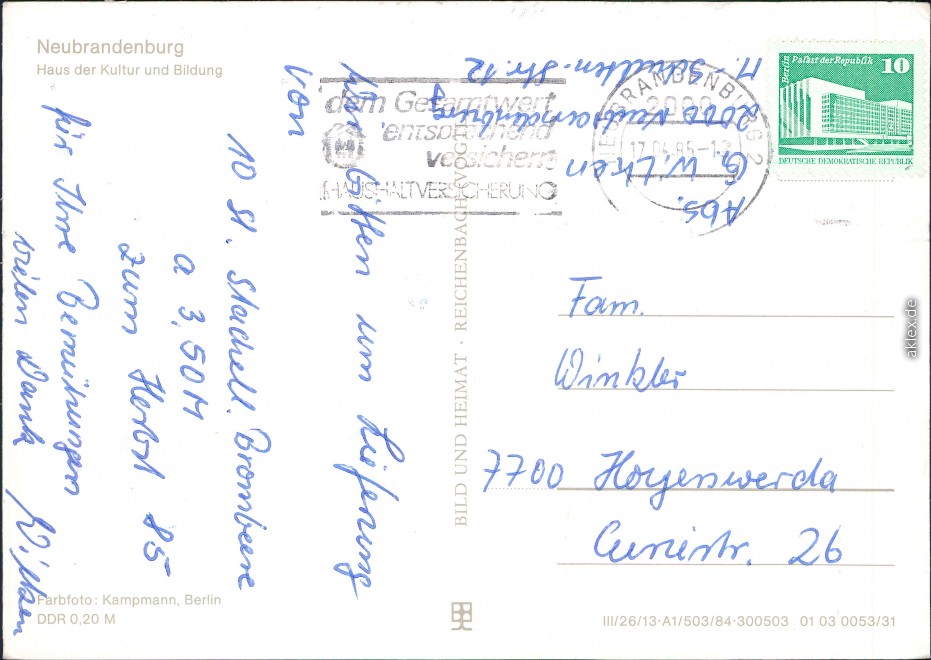 Neubrandenburg
Haus der Kultur und Bildung
Abs.
G. Wilken
2000 Neubrandenburg
Wir bitten um Lieferung
von
10 St. Stachell. Brombeere
a 3,50 M
zum Herbst 85
Für Ihre Bemühungen
vielen Dank
Wilken
dem Gesamtwert
entsprechend
versichern
HAUSHALTVERSICHERUNG
NEUBRANDENBURG 2
2000
17.04.85-12
Berlin Palast der Republik 10
DEUTSCHE DEMOKRATISCHE REPUBLIK
BILD UND HEIMAT · REICHENBACH (VOGTL)
Fam.
Winkler
7700 Hoyerswerda
Curiestr. 26
Farbfoto: Kampmann, Berlin
DDR 0,20 M
III/26/13·A1/503/84·300503 01 03 0053/31
aklex.de